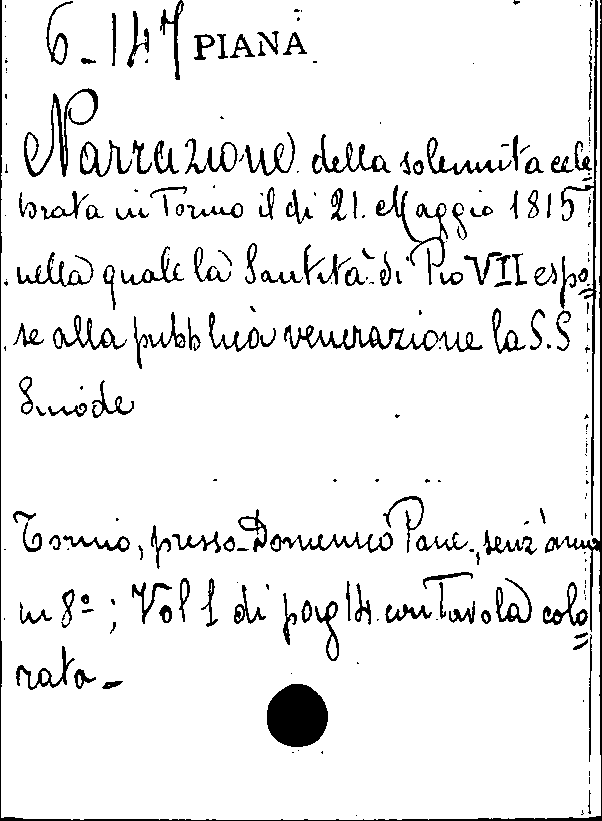 6-147 PIANA
Narrazione della solennita cele
brata in Torino il di 21. Maggio 1815
nella quale la Santità di Pio VII espo
se alla pubblica venerazione la S.S
Sindone
Torino, presso Domenico Pane, senz'anno
in 8º; Vol 1 di pag 14 con Tavola colo
rata-